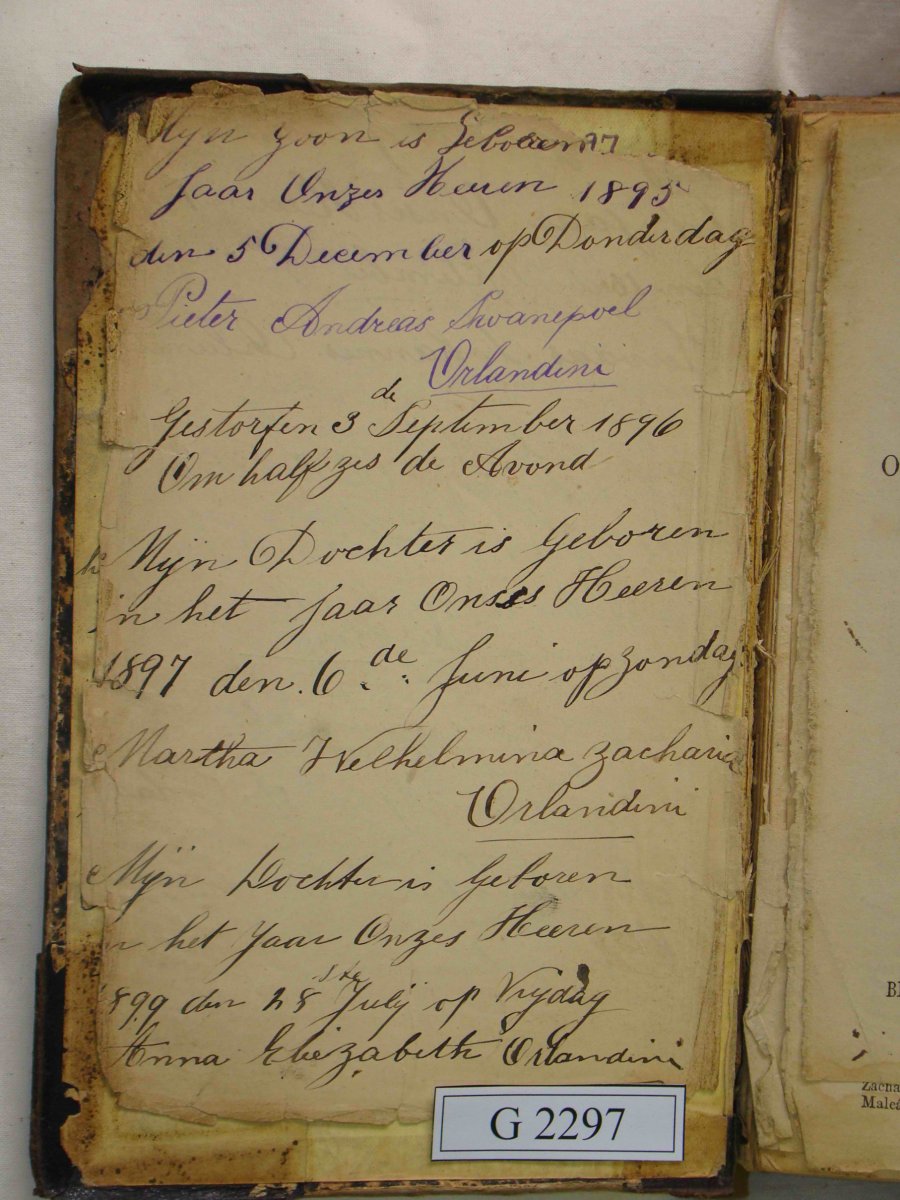 Mijn zoon is Geboren
Jaar Onzes Heeren 1895
den 5 December op Donderdag
Pieter Andreas Swanepoel
Orlandini
Gestorfen 3 de September 1896
Om half zes de Avond
Mijn Dochter is Geboren
in het Jaar Onses Heeren
1897 den 6 de Juni op zondag
Martha Welhelmina zacharia
Orlandini
Mijn Dochter is Geboren
het Jaar Onzes Heeren
1899 den 28 ste Julij op Vrijdag
Anna Eliezabeth Orlandini
G 2297
O
B
Zacha
Maleá